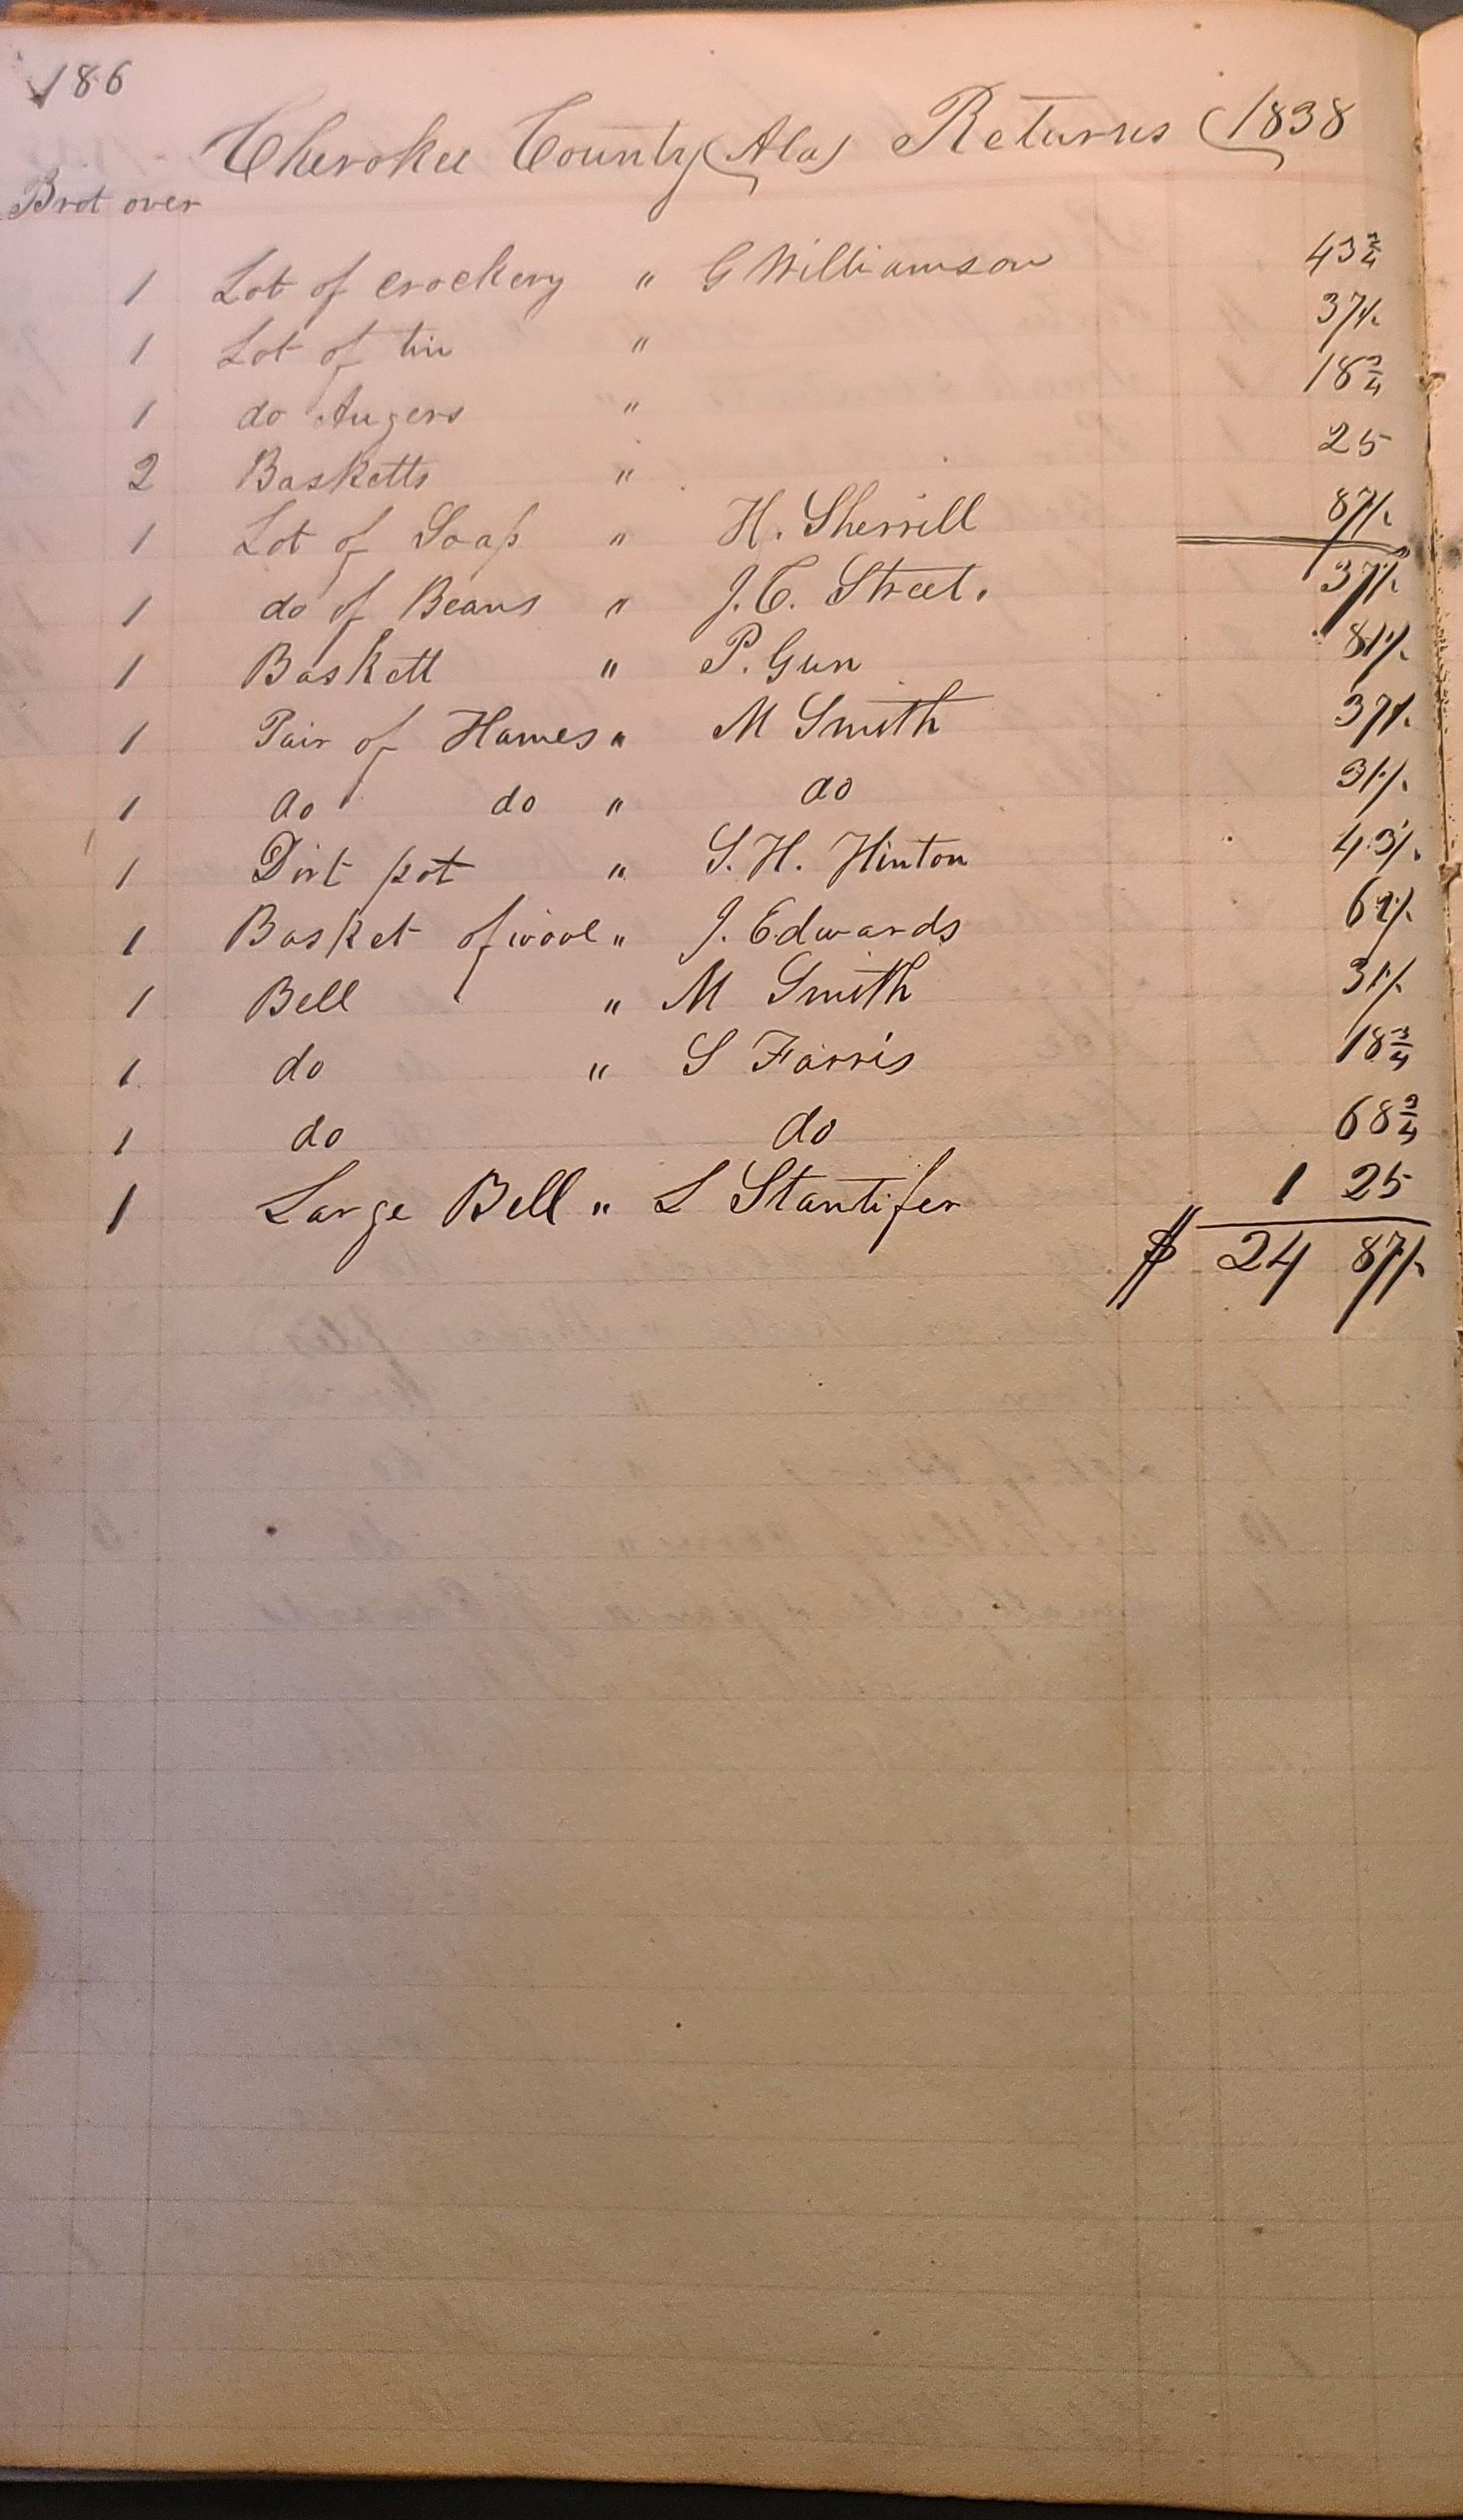 186
Cherokee County (Ala) Returns (1838
Brot over
1 Lot of crockery " G Williamson 43 3/4
1 Lot of tin " 37 1/2
1 do Augers " 18 3/4
2 Basketts " 25
1 Lot of Soap " H. Sherrill 87 1/2
1 do of Beans " J. C. Street. 37 1/2
1 Baskett " P. Gun 81 1/4
1 Pair of Hames " M Smith 37 1/2
1 do do " do 31 1/4
1 Dirt pot " S. H. Hinton 43 3/4
1 Basket of wool " J. Edwards 62 1/2
1 Bell " M Smith 31 1/4
1 do " S Farris 18 3/4
1 do do 68 3/4
1 Large Bell " L Stantifer 1 25
$ 24 87 1/2